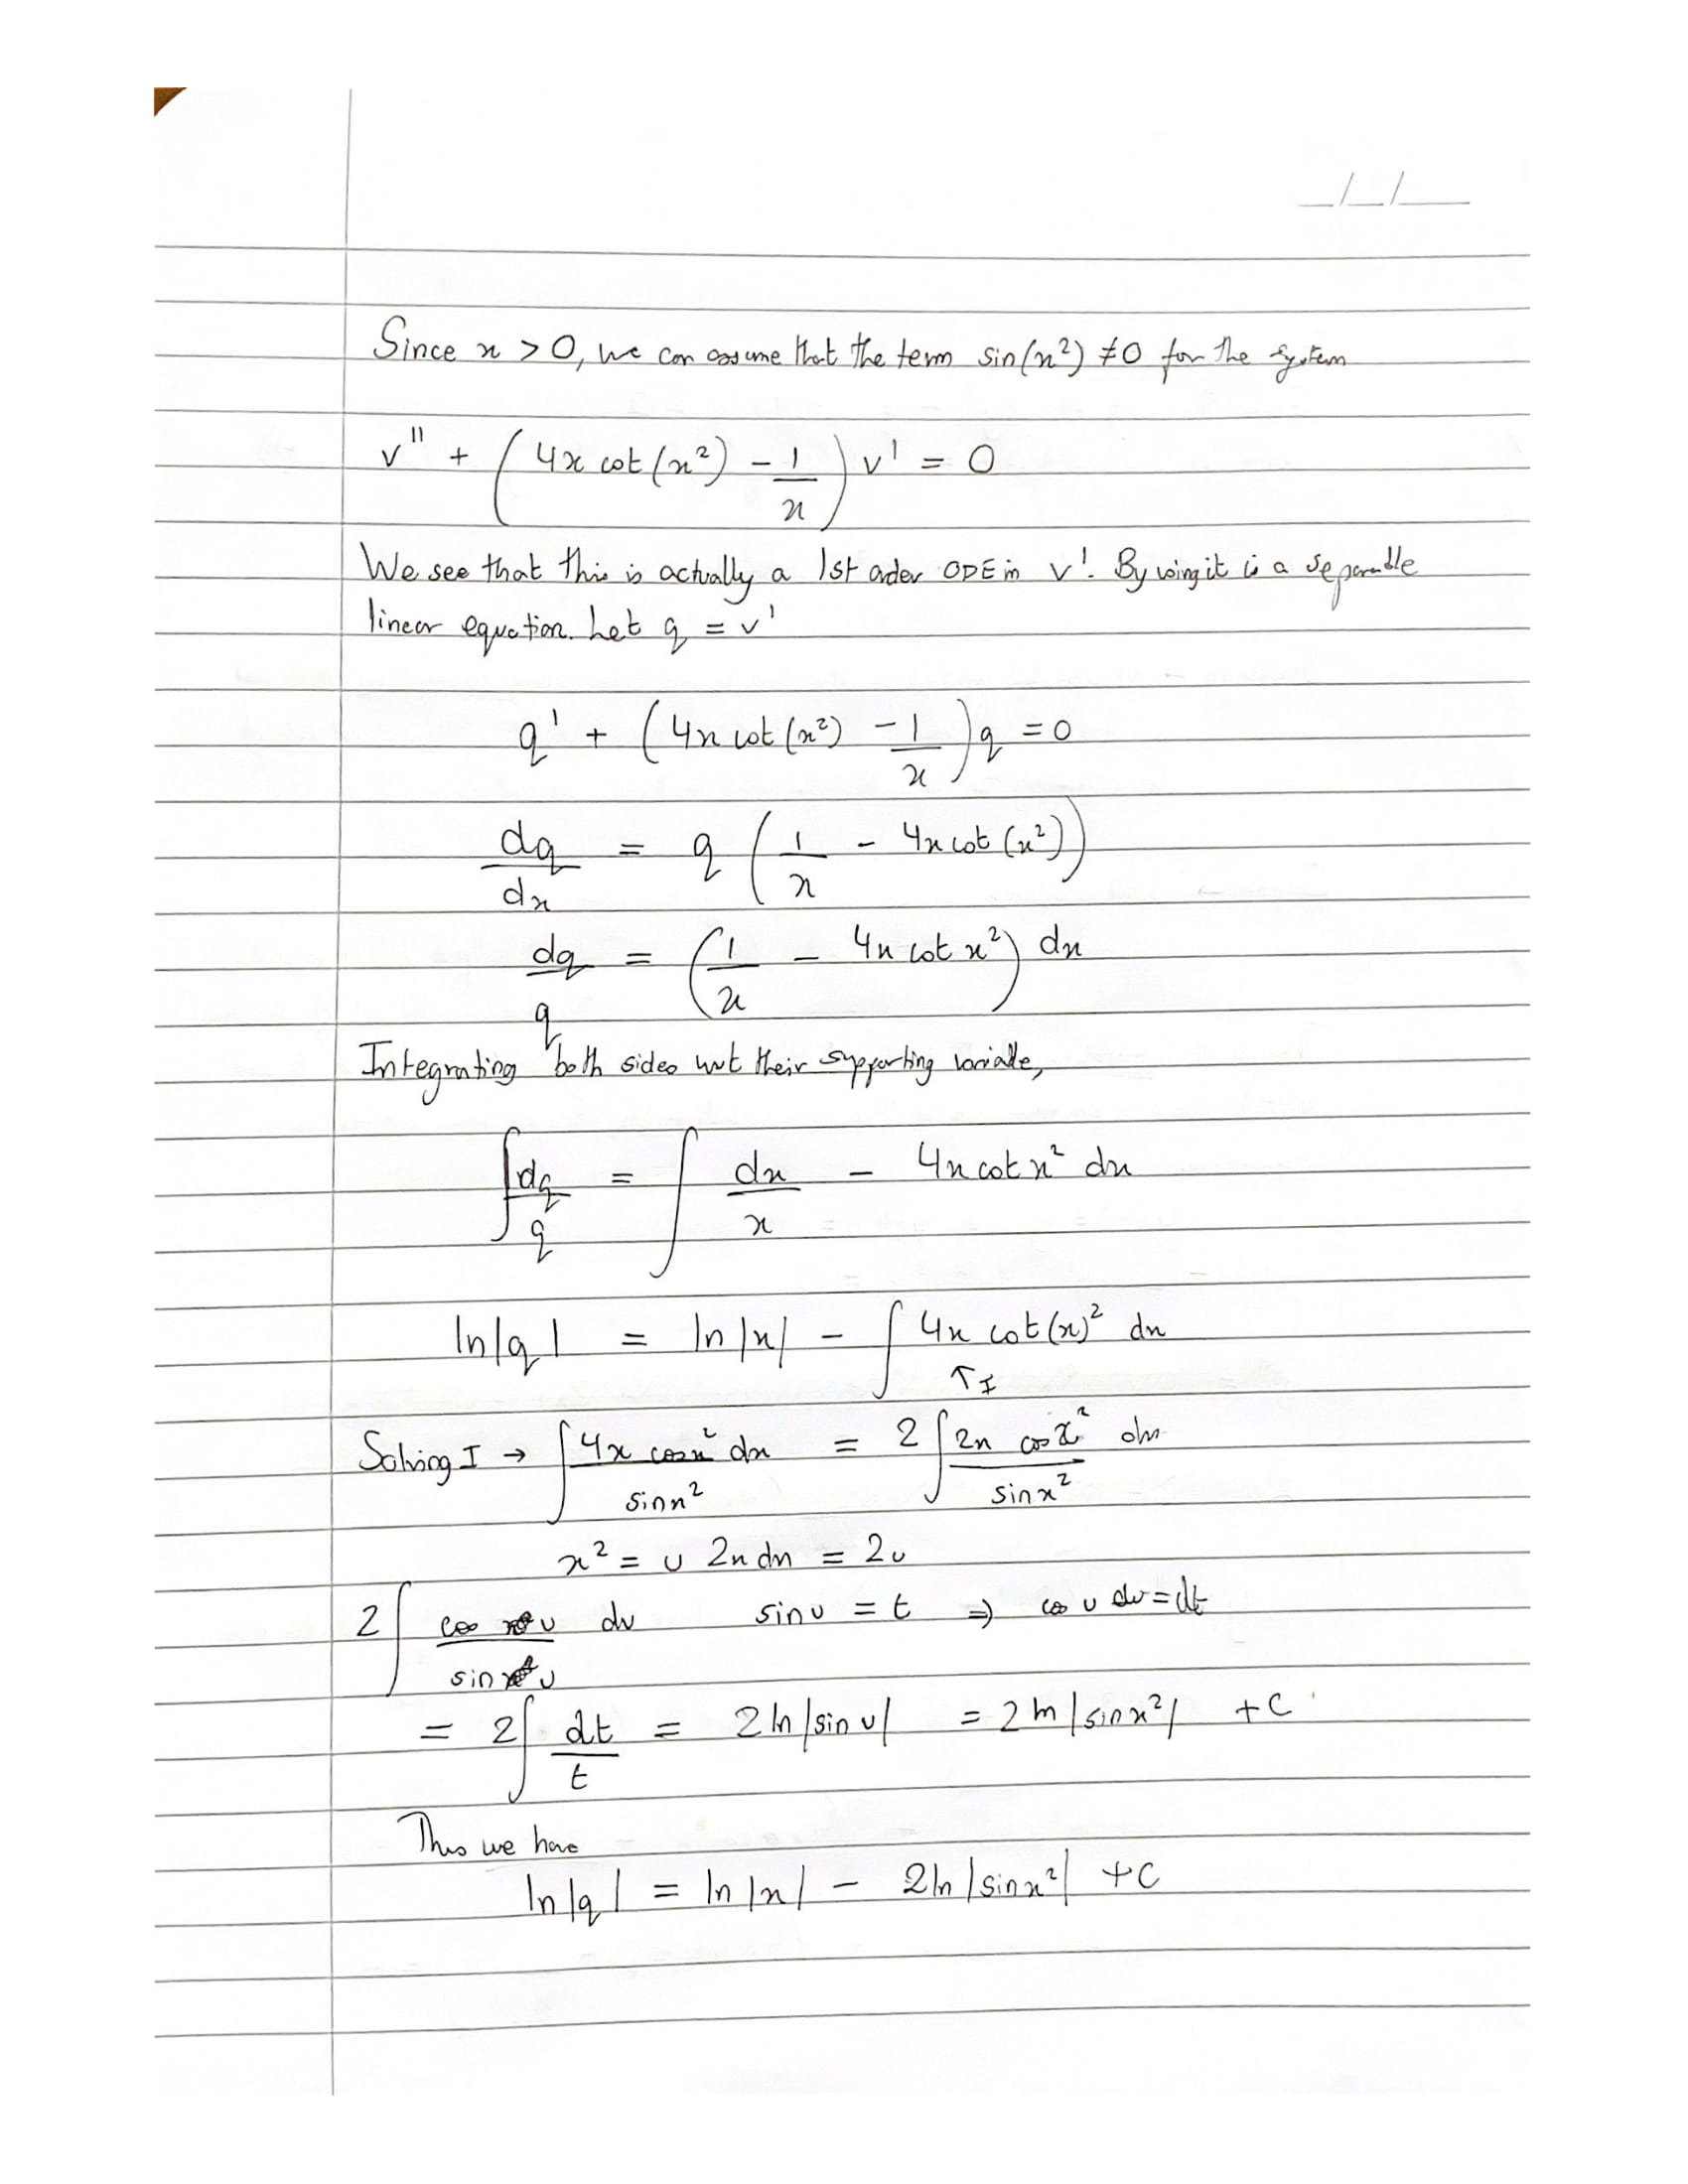 _/_/__
Since x > 0, we can assume that the term sin(x²) ≠ 0 for the system
v'' + (4x cot(x²) - 1/x) v' = 0
We see that this is actually a 1st order ODE in v'. By using it is a separable
linear equation. Let q = v'
q' + (4x cot(x²) - 1/x) q = 0
dq/dx = q (1/x - 4x cot(x²))
dq/q = (1/x - 4x cot x²) dx
Integrating both sides wrt their supporting variable,
∫ dq/q = ∫ dx/x - 4x cot x² dx
ln|q| = ln|x| - ∫ 4x cot(x)² dx
↑ I
Solving I → ∫ 4x cos x² dx / sin x² = 2 ∫ 2x cos x² / sin x² dx
x² = u 2x dx = 2u
2 ∫ cos u / sin u du sin u = t ⇒ cos u du = dt
= 2 ∫ dt/t = 2 ln|sin u| = 2 ln|sin x²| + C
Thus we have
ln|q| = ln|x| - 2 ln|sin x²| + C